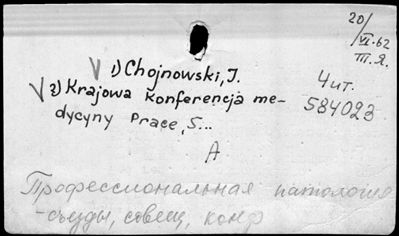 20/VI-62
П.Я.
√ 1) Chojnowski, J.
√ 2) Krajowa konferencja me-
dycyny Prace, S...
4 ит.
584023
A
Профессиональная патология
-съезды, совещ, конф